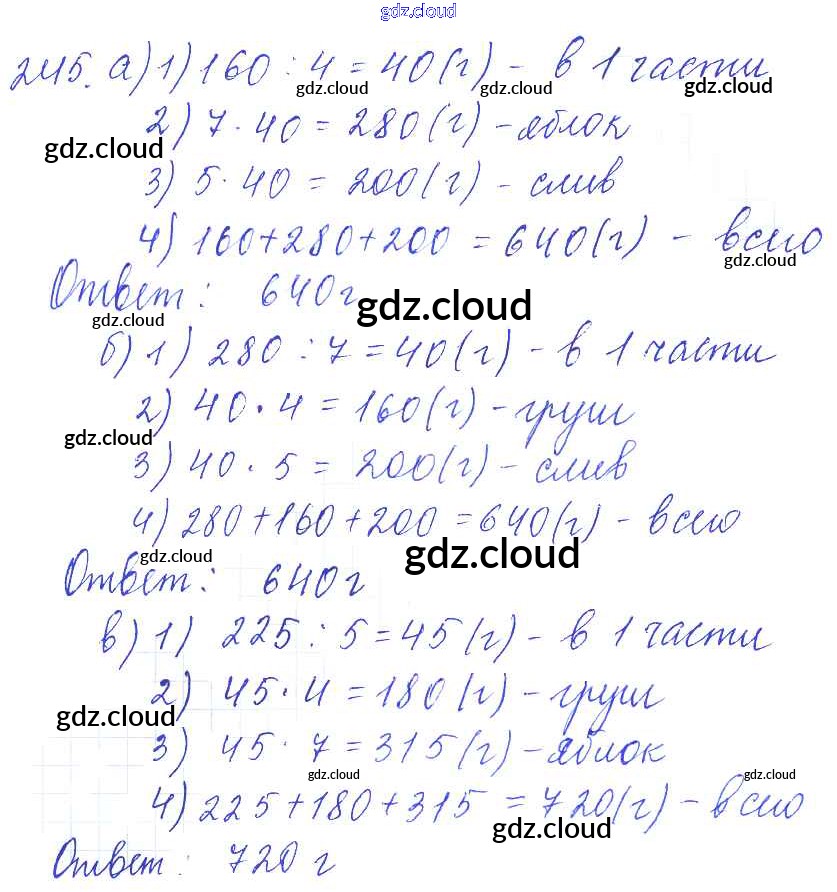 gdz.cloud
245. а) 1) 160 : 4 = 40 (г) - в 1 части
gdz.cloud gdz.cloud gdz.cloud
2) 7 · 40 = 280 (г) - яблок
gdz.cloud
3) 5 · 40 = 200 (г) - слив
4) 160 + 280 + 200 = 640 (г) - всего
gdz.cloud
Ответ: 640 г
gdz.cloud gdz.cloud
б) 1) 280 : 7 = 40 (г) - в 1 части
2) 40 · 4 = 160 (г) - груш
gdz.cloud
3) 40 · 5 = 200 (г) - слив
4) 280 + 160 + 200 = 640 (г) - всего
gdz.cloud gdz.cloud
Ответ: 640 г
в) 1) 225 : 5 = 45 (г) - в 1 части
2) 45 · 4 = 180 (г) - груш
gdz.cloud
3) 45 · 7 = 315 (г) - яблок
gdz.cloud gdz.cloud
4) 225 + 180 + 315 = 720 (г) - всего
gdz.cloud
Ответ: 720 г